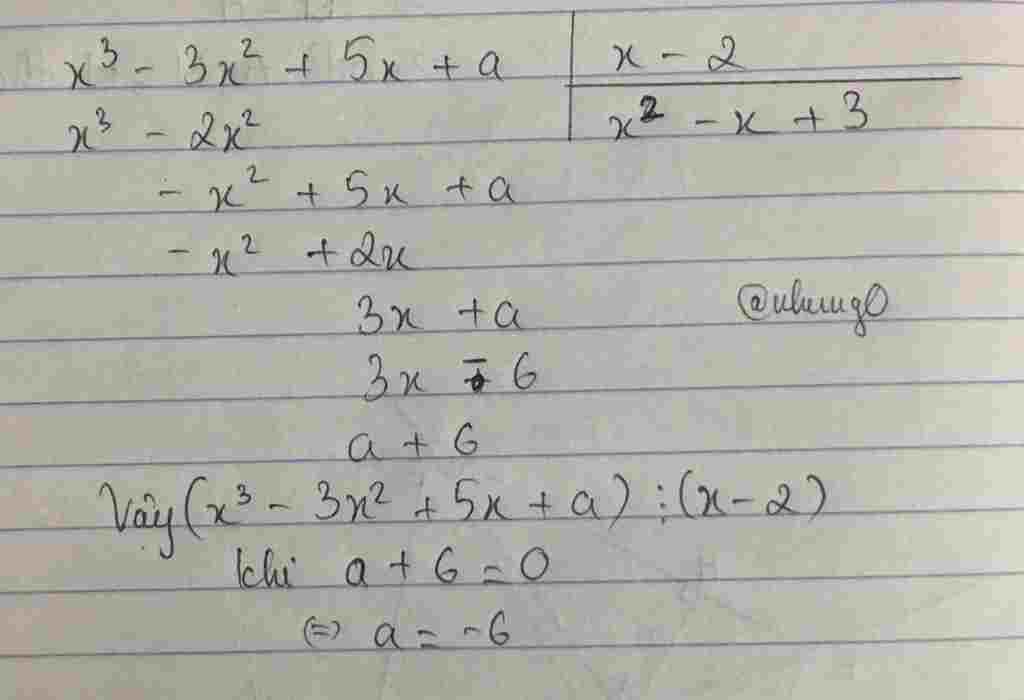 x³ - 3x² + 5x + a | x - 2
x³ - 2x² | x² - x + 3
- x² + 5x + a
- x² + 2x
3x + a
@nhung0
3x - 6
a + 6
Vậy (x³ - 3x² + 5x + a) ⋮ (x - 2)
khi a + 6 = 0
⇔ a = -6